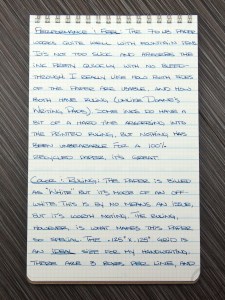 PERFORMANCE & FEEL: THE 70LBS PAPER
WORKS QUITE WELL WITH FOUNTAIN PENS.
IT'S NOT TOO SLICK AND ABSORBS THE
INK PRETTY QUICKLY WITH NO BLEED-
THROUGH. I REALLY LIKE HOW BOTH SIDES
OF THE PAPER ARE USABLE AND HOW
BOTH HAVE RULING (UNLIKE DOANE'S
WRITING PADS). SOME INKS DO HAVE A
BIT OF A HARD TIME ABSORBING WITH
THE PRINTED RULING, BUT NOTHING HAS
BEEN UNBEARABLE. FOR A 100%
RECYCLED PAPER IT'S GREAT.
COLOR & RULING: THE PAPER IS BILLED
AS "WHITE" BUT IT'S MORE OF AN OFF-
WHITE. THIS IS BY NO MEANS AN ISSUE,
BUT IT'S WORTH NOTING. THE RULING,
HOWEVER, IS WHAT MAKES THIS PAPER
SO SPECIAL. THE .125" X .125" GRID IS
AN IDEAL SIZE FOR MY HANDWRITING.
THERE ARE 3 ROWS PER LINE, AND